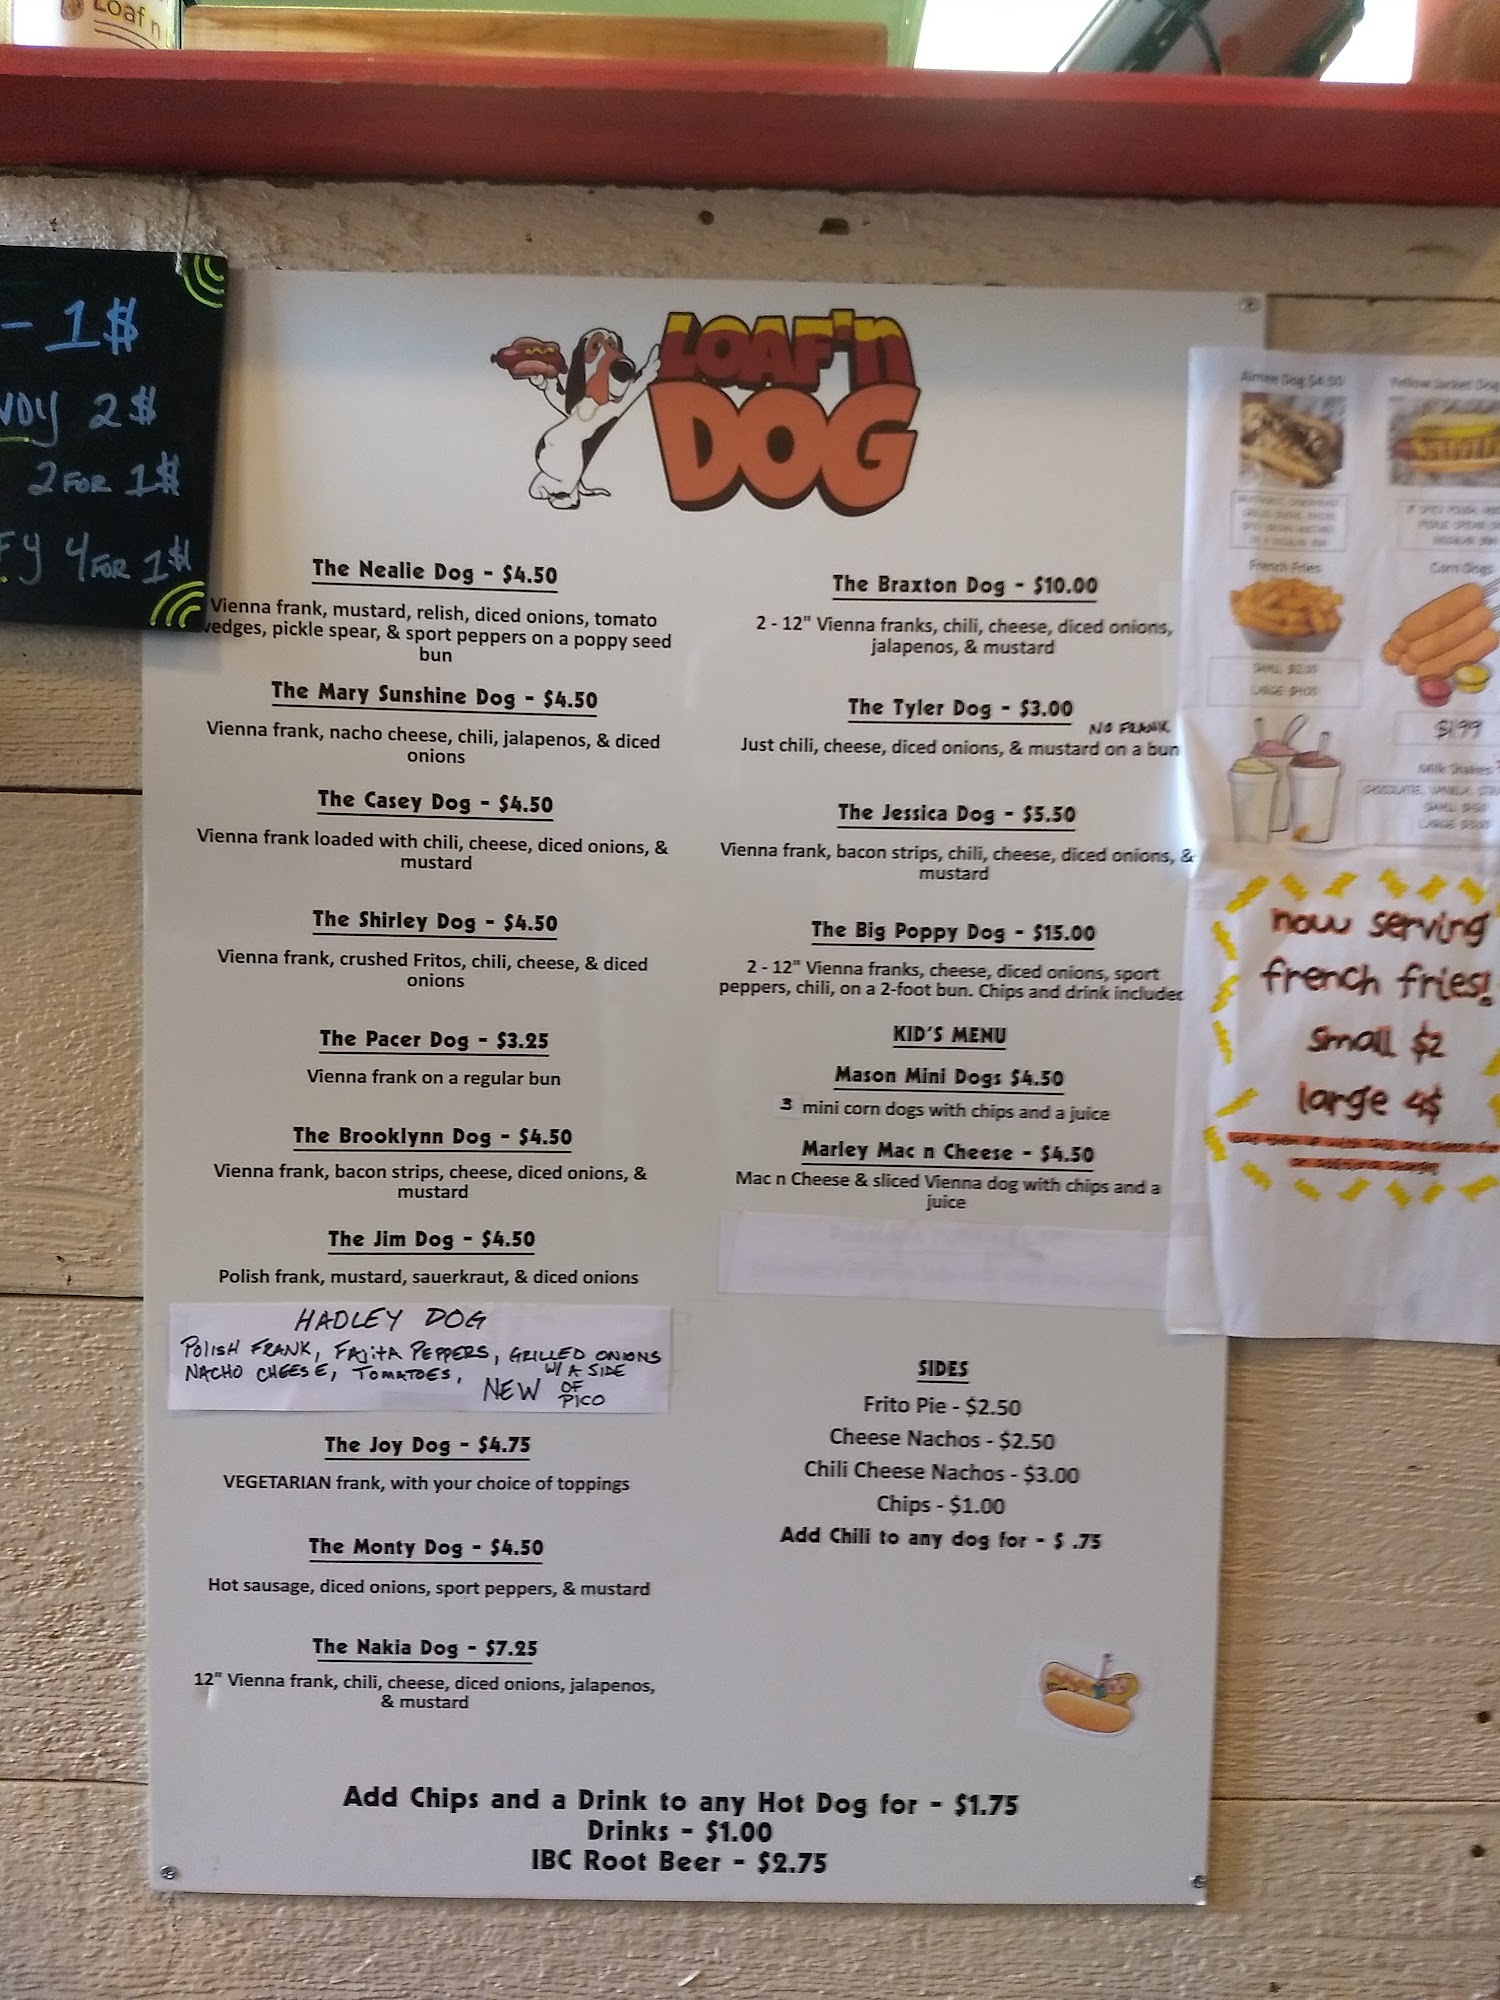 Loaf n
- 1$
NDY 2$
2 FOR 1$
FY 4 FOR 1$
LOAF'n
DOG
The Nealie Dog - $4.50
Vienna frank, mustard, relish, diced onions, tomato
wedges, pickle spear, & sport peppers on a poppy seed
bun
The Mary Sunshine Dog - $4.50
Vienna frank, nacho cheese, chili, jalapenos, & diced
onions
The Casey Dog - $4.50
Vienna frank loaded with chili, cheese, diced onions, &
mustard
The Shirley Dog - $4.50
Vienna frank, crushed Fritos, chili, cheese, & diced
onions
The Pacer Dog - $3.25
Vienna frank on a regular bun
The Brooklynn Dog - $4.50
Vienna frank, bacon strips, cheese, diced onions, &
mustard
The Jim Dog - $4.50
Polish frank, mustard, sauerkraut, & diced onions
HADLEY DOG
POLISH FRANK, FAJITA PEPPERS, GRILLED ONIONS
NACHO CHEESE, TOMATOES, W/ A SIDE
NEW OF
PICO
The Joy Dog - $4.75
VEGETARIAN frank, with your choice of toppings
The Monty Dog - $4.50
Hot sausage, diced onions, sport peppers, & mustard
The Nakia Dog - $7.25
12" Vienna frank, chili, cheese, diced onions, jalapenos,
& mustard
The Braxton Dog - $10.00
2 - 12" Vienna franks, chili, cheese, diced onions,
jalapenos, & mustard
The Tyler Dog - $3.00
NO FRANK
Just chili, cheese, diced onions, & mustard on a bun
The Jessica Dog - $5.50
Vienna frank, bacon strips, chili, cheese, diced onions, &
mustard
The Big Poppy Dog - $15.00
2 - 12" Vienna franks, cheese, diced onions, sport
peppers, chili, on a 2-foot bun. Chips and drink included
KID'S MENU
Mason Mini Dogs $4.50
3 mini corn dogs with chips and a juice
Marley Mac n Cheese - $4.50
Mac n Cheese & sliced Vienna dog with chips and a
juice
SIDES
Frito Pie - $2.50
Cheese Nachos - $2.50
Chili Cheese Nachos - $3.00
Chips - $1.00
Add Chili to any dog for - $ .75
Add Chips and a Drink to any Hot Dog for - $1.75
Drinks - $1.00
IBC Root Beer - $2.75
Aimee Dog $4.50
Yellow Jacket Dog
French Fries
SMALL $2.00
LARGE $4.00
Corn Dogs
$1.99
Milk Shakes
CHOCOLATE, VANILLA, STRA
now serving
french fries!
small $2
large 4$